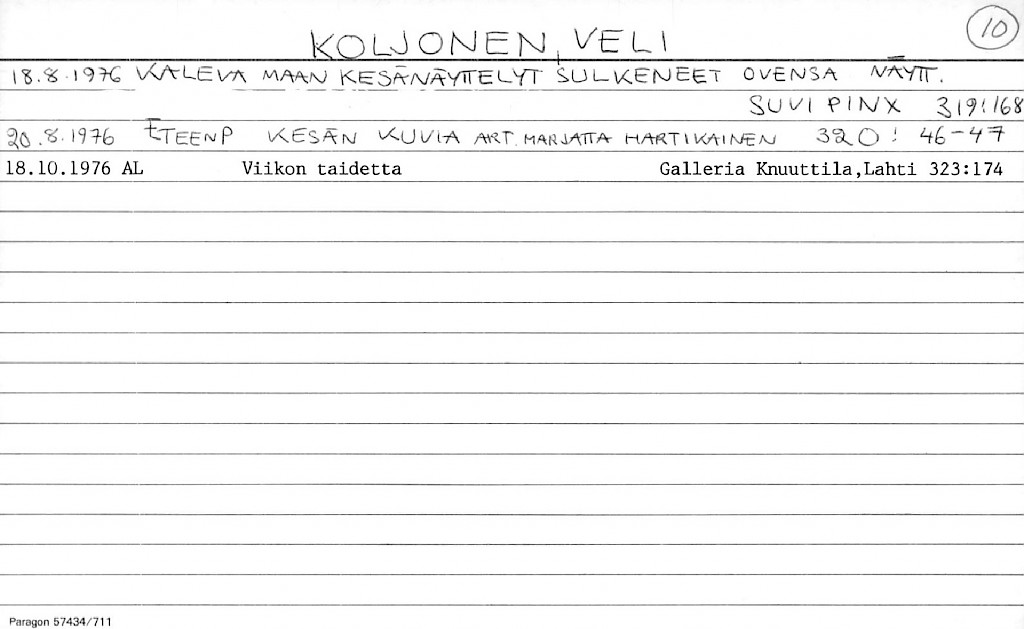 10
KOLJONEN, VELI
18.8.1976 KALEVA MAAN KESÄNÄYTTELYT SULKENEET OVENSA NÄYTT.
SUVI PINX 319:168
20.8.1976 ETEENP KESÄN KUVIA ART. MARJATTA HARTIKAINEN 320: 46-47
18.10.1976 AL Viikon taidetta Galleria Knuuttila,Lahti 323:174
Paragon 57434/711